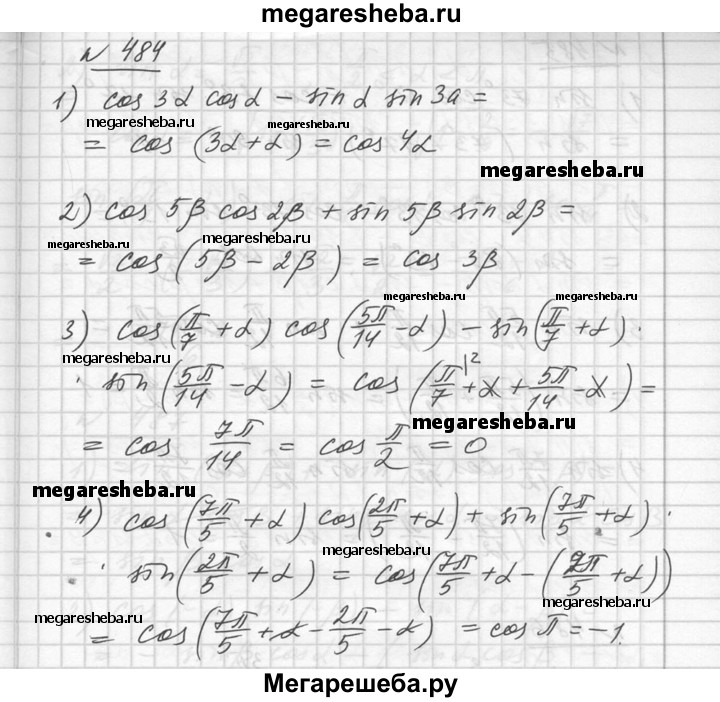 megaresheba.ru
N 484
1) cos 3α cos α − sin α sin 3a =
megaresheba.ru megaresheba.ru
= cos (3α + α) = cos 4α
megaresheba.ru
2) cos 5β cos 2β + sin 5β sin 2β =
megaresheba.ru megaresheba.ru
= cos (5β − 2β) = cos 3β
megaresheba.ru megaresheba.ru
3) cos(π/7 + α) cos(5π/14 − α) − sin(π/7 + α) ·
megaresheba.ru
· sin(5π/14 − α) = cos(π/7 |2 + α + 5π/14 − α) =
megaresheba.ru
= cos 7π/14 = cos π/2 = 0
megaresheba.ru
4) cos(7π/5 + α) cos(2π/5 + α) + sin(7π/5 + α) ·
megaresheba.ru
· sin(2π/5 + α) = cos(7π/5 + α − (2π/5 + α))
megaresheba.ru megaresheba.ru
= cos(7π/5 + α − 2π/5 − α) = cos π = −1.
Мегарешеба.ру